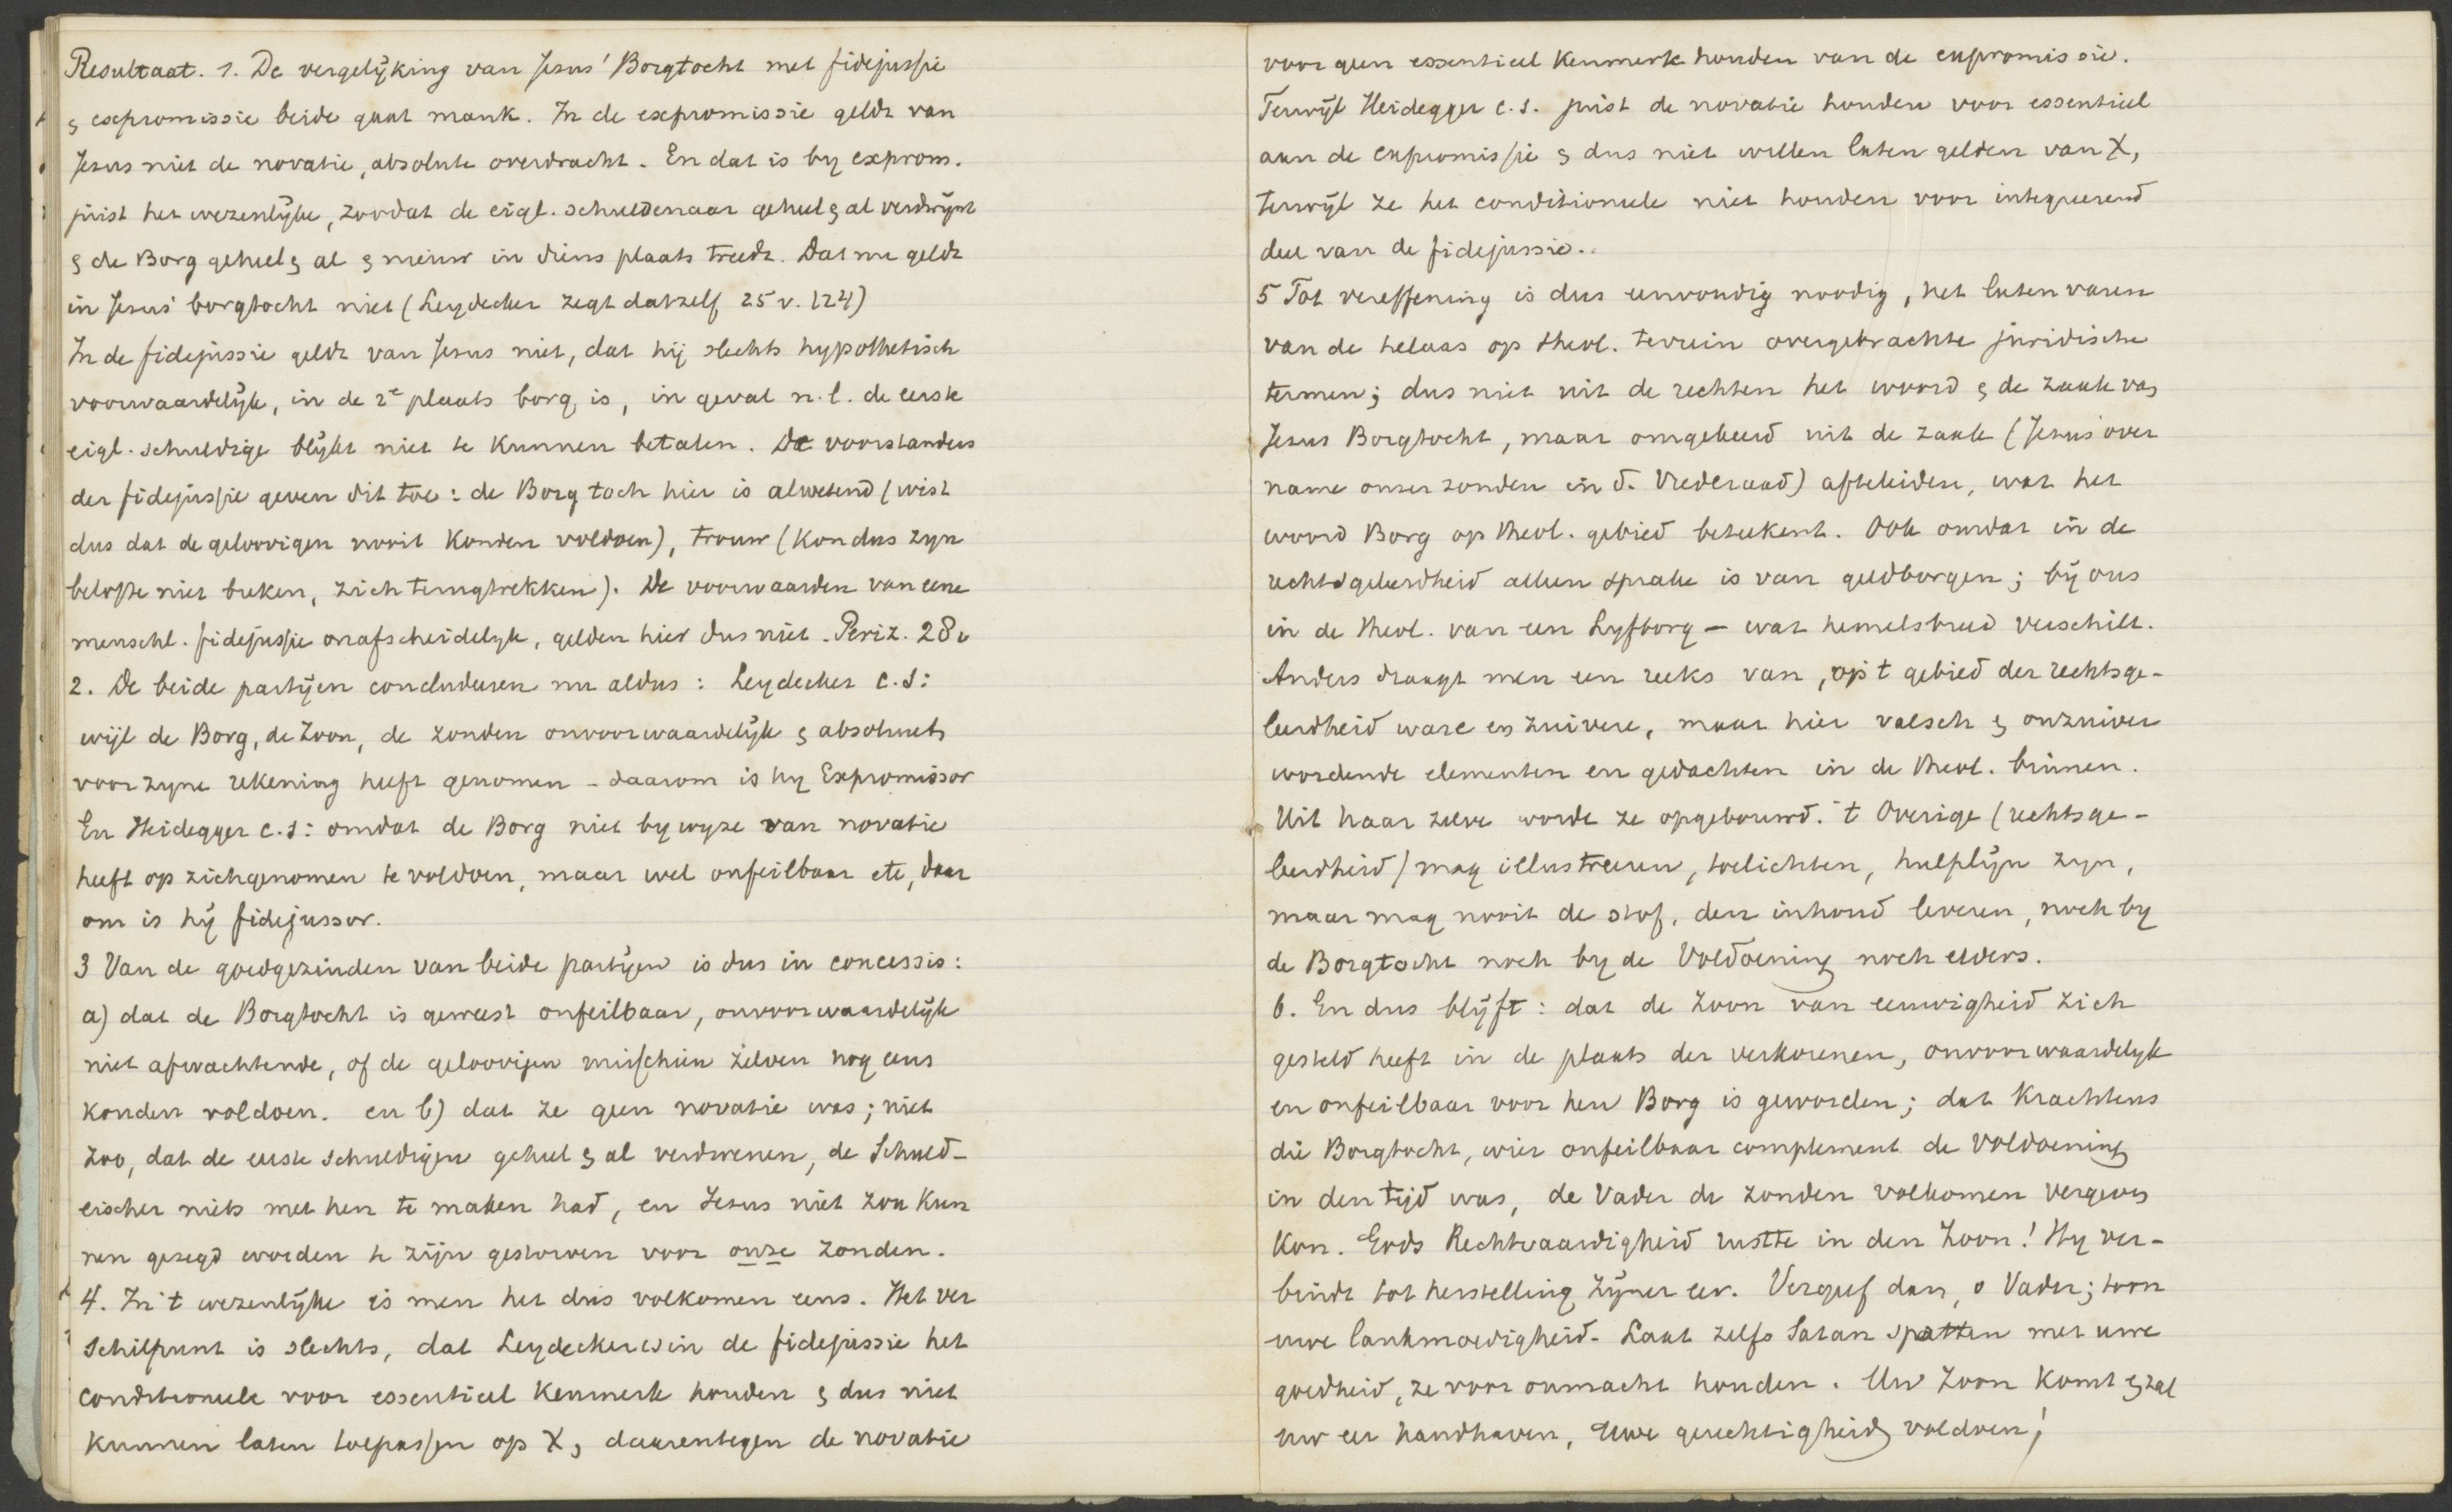 Resultaat. 1. De vergelijking van Jesus' Borgtocht met fidejussie
& expromissie beide gaat mank. In de expromissie geldt van
Jesus niet de novatie, absolute overdracht. En dat is by exprom.
juist het wezenlijke, zoodat de eigl. schuldenaar geheel & al verdwijnt
& de Borg geheel & al & nieuw in diens plaats treedt. Dat nu geldt
in Jesus' borgtocht niet (Leydecker zegt dat zelf 25 v. 124)
In de fidejussie geldt van Jesus niet, dat hij slechts hypothetisch
voorwaardelijk, in de 2e plaats borg is, in geval n.l. de eerste
eigl. schuldige blijkt niet te kunnen betalen. De voorstanders
der fidejussie geven dit toe: de Borg toch hier is alwetend (wist
dus dat de geloovigen nooit konden voldoen), trouw (kon dus zyn
belofte niet breken, zich terugtrekken). De voorwaarden van eene
menschl. fidejussie onafscheidelyk, gelden hier dus niet. Periz. 28v
2. De beide partijen concludeeren nu aldus: Leydecker c.s:
wijl de Borg, de Zoon, de zonden onvoorwaardelijk & absoluut
voor zyne rekening heeft genomen - daarom is hy Expromissor
En Heidegger c.s: omdat de Borg niet by wyze van novatie
heeft op zich genomen te voldoen, maar wel onfeilbaar etc, daar
om is hij fidejussor.
3 Van de goedgezinden van beide partijen is dus in concessis:
a) dat de Borgtocht is geweest onfeilbaar, onvoorwaardelijk
niet afwachtende, of de geloovigen misschien zelven nog eens
konden voldoen. en b) dat ze geen novatie was; niet
zoo, dat de eerste schuldigen geheel & al verdwenen, de Schuld-
eischer niets met hen te maken had, en Jesus niet zou kun
nen gezegd worden te zijn gestorven voor onze zonden.
4. In 't wezenlijke is men het dus volkomen eens. Het ver
schilpunt is slechts, dat Leydecker cs in de fidejussie het
conditioneele voor essentieel kenmerk houden & dus niet
kunnen laten toepassen op X, daarentegen de novatie
voor geen essentieel kenmerk houden van de expromissie.
Terwijl Heidegger c.s. juist de novatie houden voor essentieel
aan de expromissie & dus niet willen laten gelden van X,
terwijl ze het conditioneele niet houden voor integreerend
deel van de fidejussie.
5 Tot vereffening is dus eenvoudig noodig, het laten varen
van de helaas op theol. terrein overgebrachte juridische
termen; dus niet uit de rechten het woord & de zaak van
Jesus Borgtocht, maar omgekeerd uit de zaak (Jesus' over
name onzer zonden in d. Vrederaad) afteleiden, wat het
woord Borg op theol. gebied beteekent. Ook omdat in de
rechtsgeleerdheid alleen sprake is van geldborgen; bij ons
in de theol. van een Lyfborg - wat hemelsbreed verschilt.
Anders draagt men een reeks van, op 't gebied der rechtsge-
leerdheid ware en zuivere, maar hier valsch & onzuiver
wordende elementen en gedachten in de theol. binnen.
Uit haar zelve worde ze opgebouwd. 't Overige (rechtsge-
leerdheid) mag illustreeren, toelichten, hulplijn zyn,
maar mag nooit de stof, den inhoud leveren, noch by
de Borgtocht noch by de Voldoening noch elders.
6. En dus blijft: dat de Zoon van eeuwigheid zich
gesteld heeft in de plaats der verkorenen, onvoorwaardelyk
en onfeilbaar voor hen Borg is geworden; dat krachtens
die Borgtocht, wier onfeilbaar complement de Voldoening
in den tijd was, de Vader de zonden volkomen vergeven
kon. Gods Rechtvaardigheid rustte in den Zoon! Hy ver-
bindt tot herstelling zijner eer. Vergeef dan, o Vader; toon
uwe lankmoedigheid. Laat zelfs Satan spotten met uwe
goedheid, ze voor onmacht houden. Uw Zoon komt & zal
uw eer handhaven, Uwe gerechtigheid voldoen!